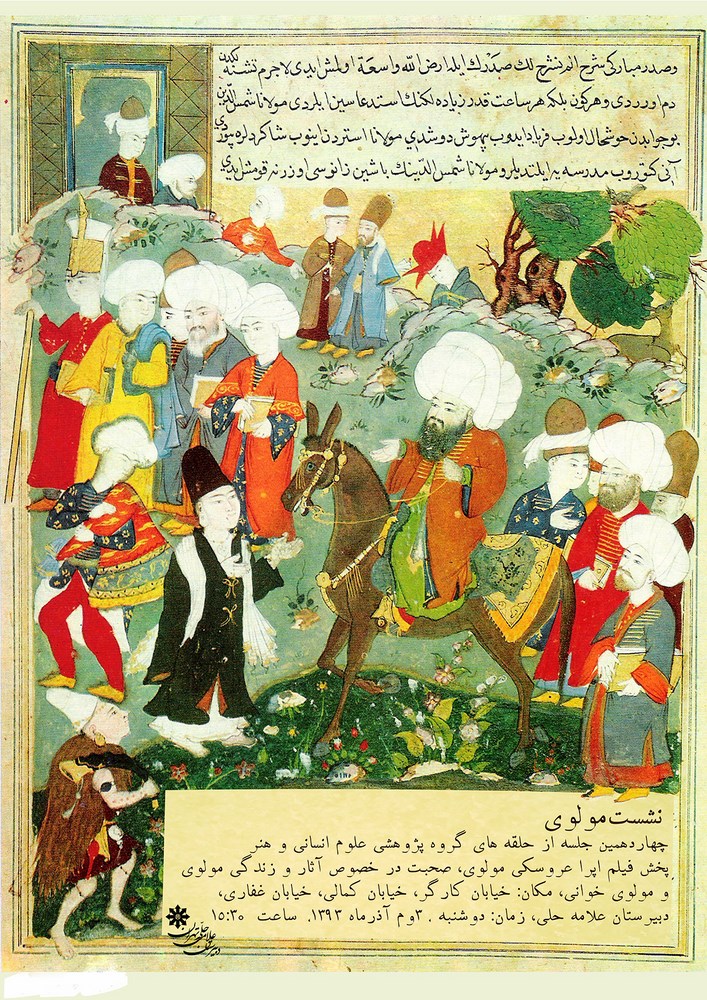 وصدر مبارکی شرح الم نشرح لك صدرك ایلد ارض الله واسعة اولمش ایدی لاجرم تشنه
دم اوردی وهرکون بلکه هر ساعت قدر زیاده لکنك استدعاسین ایلردی مولانا شمس الدین
بو جوابدن خوشحال اولوب فریاد ایدوب بیهوش دوشدی مولانا استردن اینوب شاکردلره بیوردی
آنی کتوروب مدرسه یه ایلتدیلر و مولانا شمس الدینك باشین زانوسی اوزرنه قومش ایدی
نشست مولوی
چهاردهمین جلسه از حلقه های گروه پژوهشی علوم انسانی و هنر
پخش فیلم اپرا عروسکی مولوی، صحبت در خصوص آثار و زندگی مولوی
و مولوی خوانی، مکان: خیابان کارگر، خیابان کمالی، خیابان غفاری،
دبیرستان علامه حلی، زمان: دوشنبه ۳۰وم آذرماه ۱۳۹۳. ساعت ۱۵:۳۰